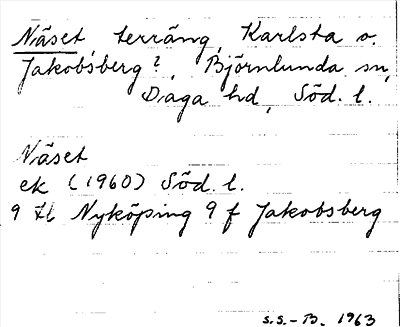 Näset terräng, Karlsta o.
Jakobsberg?, Björnlunda sn,
Daga hd, Söd. l.
Näset
ek (1960) Söd. l.
9 Nyköping 9 f Jakobsberg
S.S.-B. 1963